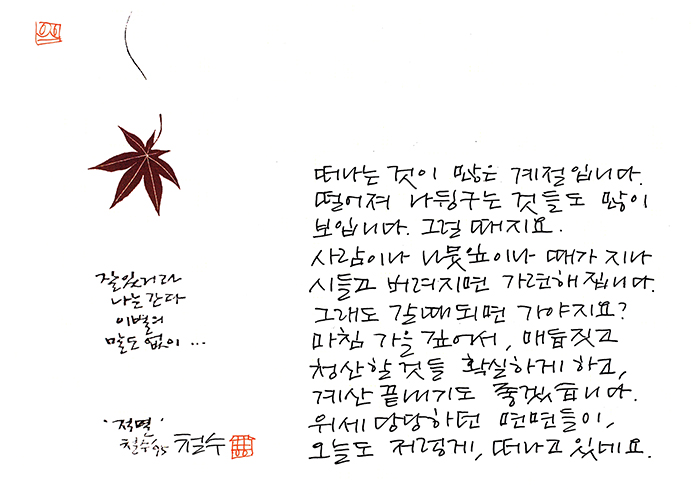 잘있거라
나는간다
이별의
말도 없이 ...
'적면'
철수95 철수
떠나는 것이 많은 계절입니다.
떨어져 나뒹구는 것들도 많이
보입니다. 그럴 때지요.
사람이나 나뭇잎이나 때가 지나
시들고 버려지면 가련해집니다.
그래도 갈때되면 가야지요?
마침 가을 깊어서, 매듭짓고
청산할 것들 확실하게 하고,
계산 끝내기도 좋겠습니다.
위세 당당하던 면면들이,
오늘도 저렇게, 떠나고 있네요.